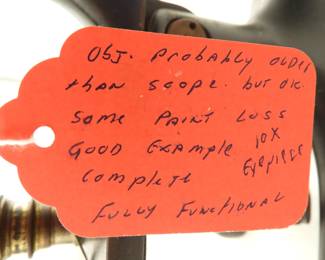 Obj. Probably older
than scope. but ok.
Some Paint Loss
Good Example 10x
Eyepiece
Complete
Fully Functional